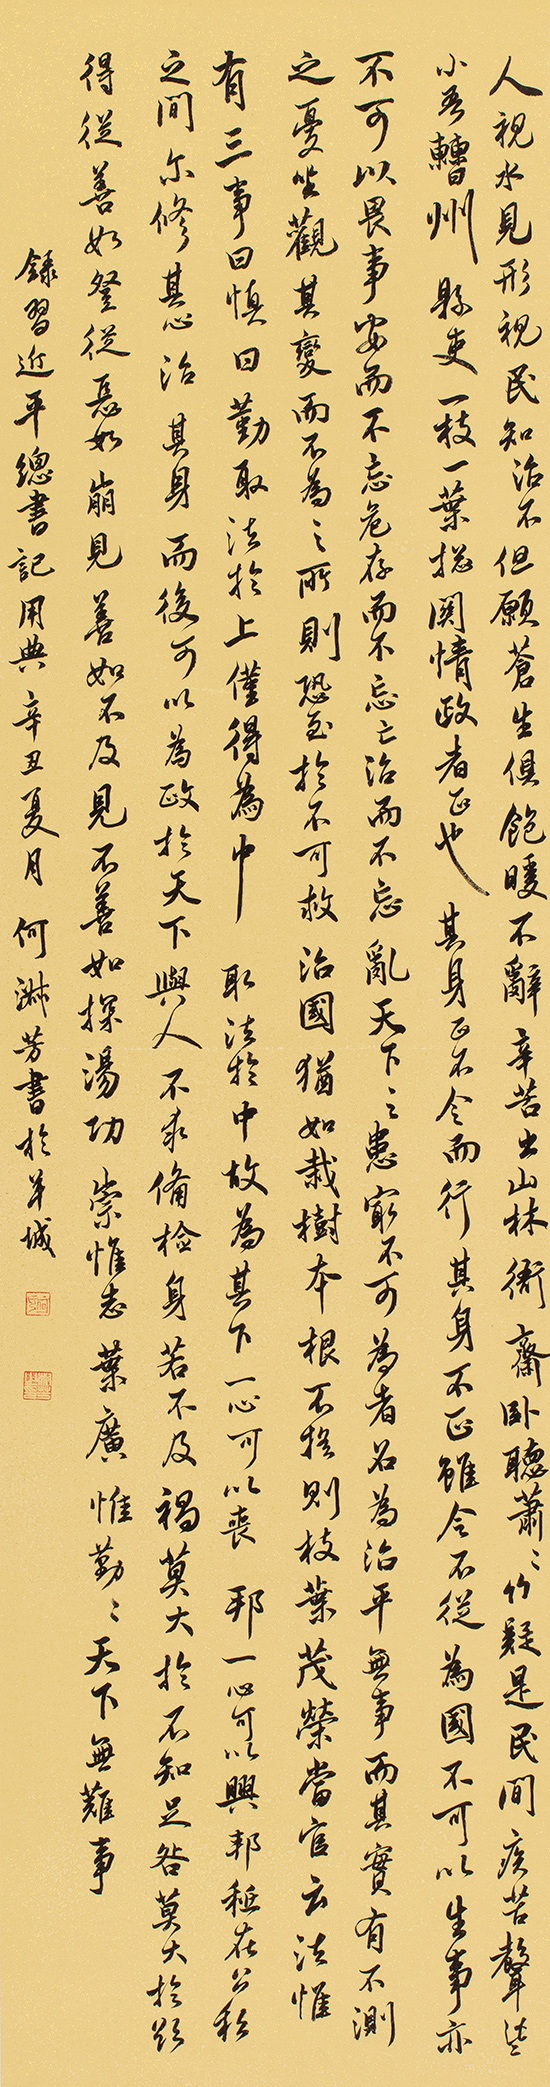 人視水見形視民知治不但願蒼生俱飽暖不辭辛苦出山林衙齋卧聽蕭〻竹疑是民間疾苦聲些
小吾曹州縣吏一枝一葉捴関情政者正也其身正不令而行其身不正雖令不從為國不可以生事亦
不可以畏事安而不忘危存而不忘亡治而不忘亂天下〻患最不可為者名為治平無事而其實有不測
之憂坐觀其變而不為之所則恐至於不可救治國猶如栽樹本根不摇則枝葉茂榮當官云法惟
有三事曰慎曰勤取法於上僅得為中取法於中故為其下一心可以喪邦一心可以興邦秪在公私
之間尔修其心治其身而後可以為政於天下與人不求俻檢身若不及禍莫大於不知足咎莫大於欲
得從善如登從惡如崩見善如不及見不善如探湯功崇惟志業廣惟勤〻天下無難事
錄習近平總書記用典辛丑夏月何淋芳書於羊城